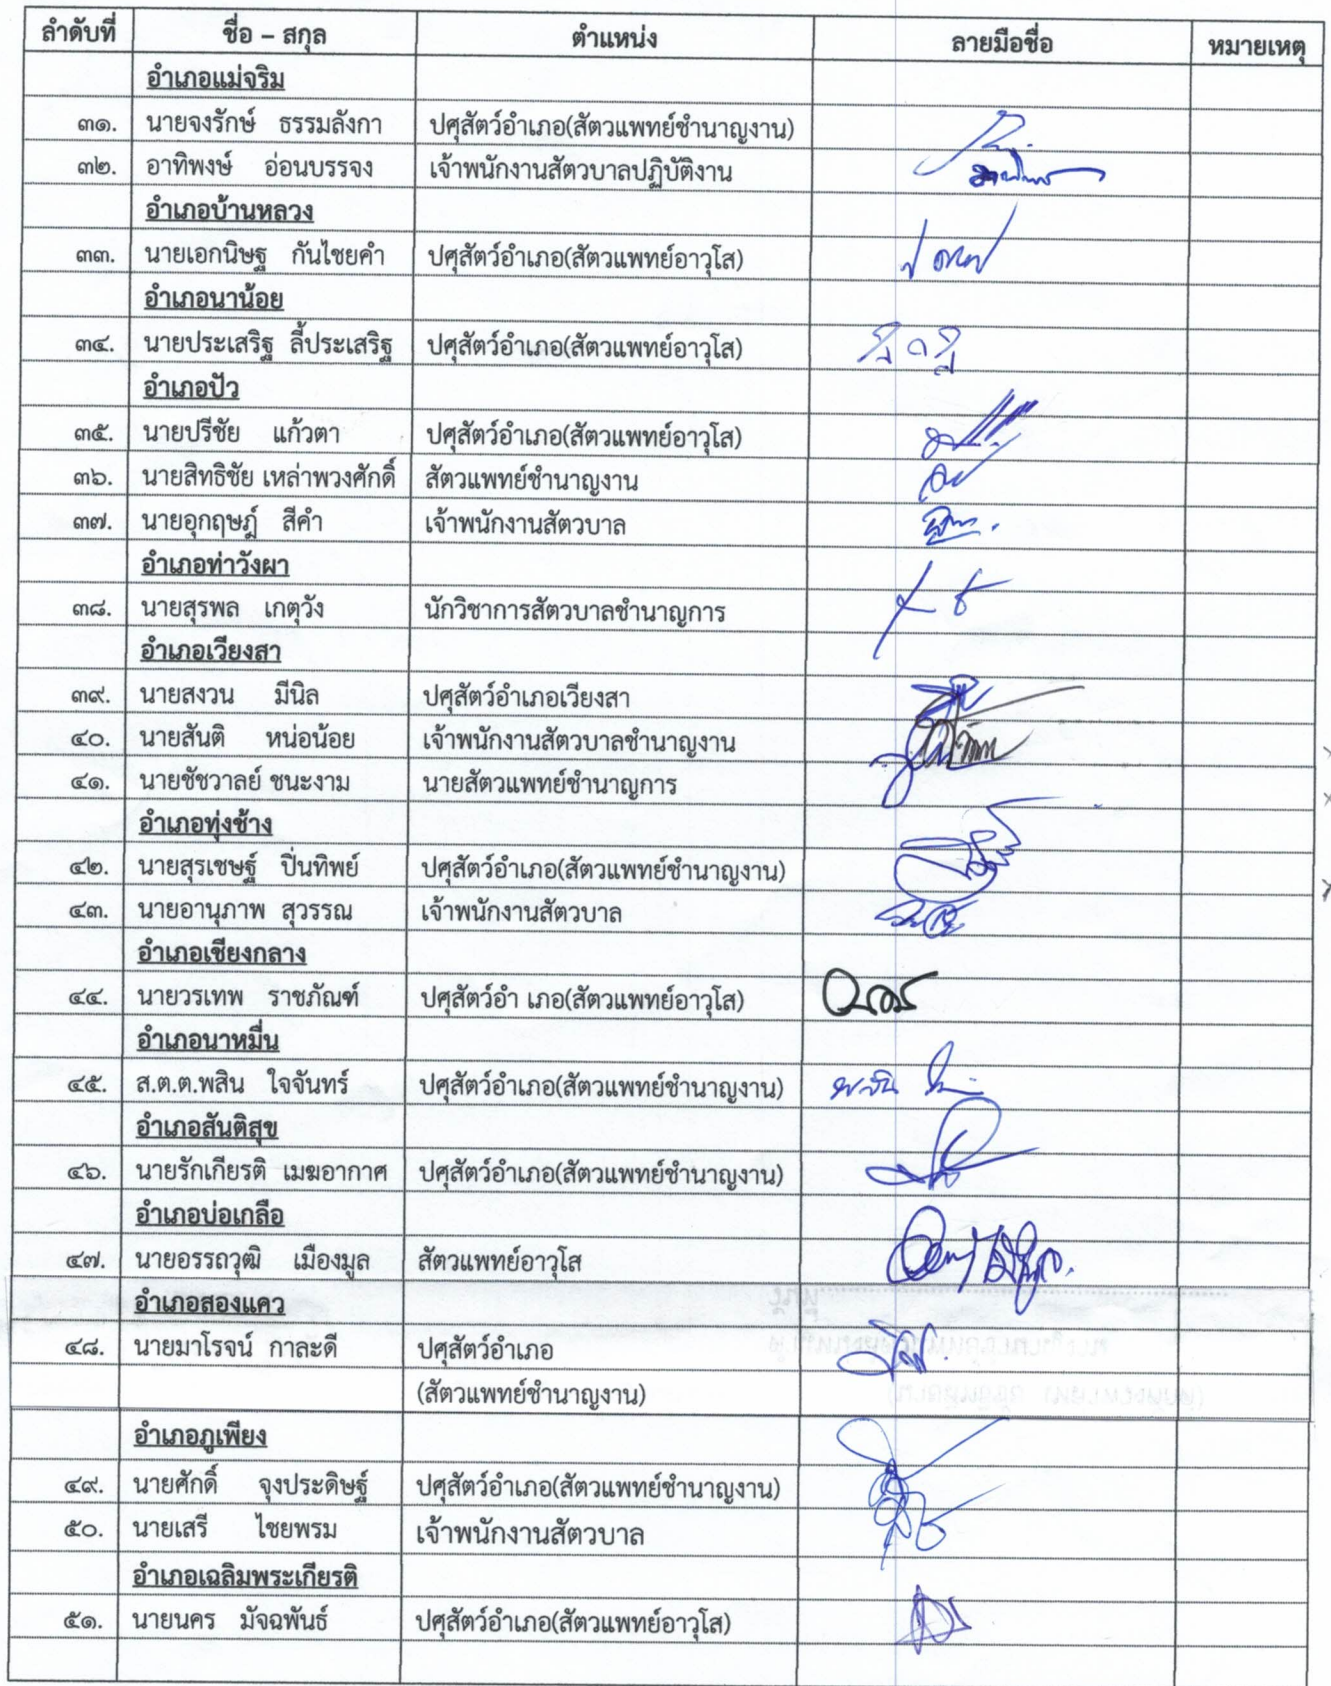 ลำดับที่ ชื่อ – สกุล ตำแหน่ง ลายมือชื่อ หมายเหตุ
อำเภอแม่จริม
๓๑. นายจงรักษ์ ธรรมลังกา ปศุสัตว์อำเภอ(สัตวแพทย์ชำนาญงาน)
๓๒. อาทิพงษ์ อ่อนบรรจง เจ้าพนักงานสัตวบาลปฏิบัติงาน
อำเภอบ้านหลวง
๓๓. นายเอกนิษฐ กันไชยคำ ปศุสัตว์อำเภอ(สัตวแพทย์อาวุโส)
อำเภอนาน้อย
๓๔. นายประเสริฐ ลี้ประเสริฐ ปศุสัตว์อำเภอ(สัตวแพทย์อาวุโส)
อำเภอปัว
๓๕. นายปรีชัย แก้วตา ปศุสัตว์อำเภอ(สัตวแพทย์อาวุโส)
๓๖. นายสิทธิชัย เหล่าพวงศักดิ์ สัตวแพทย์ชำนาญงาน
๓๗. นายอุกฤษฎ์ สีคำ เจ้าพนักงานสัตวบาล
อำเภอท่าวังผา
๓๘. นายสุรพล เกตุวัง นักวิชาการสัตวบาลชำนาญการ
อำเภอเวียงสา
๓๙. นายสงวน มีนิล ปศุสัตว์อำเภอเวียงสา
๔๐. นายสันติ หน่อน้อย เจ้าพนักงานสัตวบาลชำนาญงาน
๔๑. นายชัชวาลย์ ชนะงาม นายสัตวแพทย์ชำนาญการ
อำเภอทุ่งช้าง
๔๒. นายสุรเชษฐ์ ปิ่นทิพย์ ปศุสัตว์อำเภอ(สัตวแพทย์ชำนาญงาน)
๔๓. นายอานุภาพ สุวรรณ เจ้าพนักงานสัตวบาล
อำเภอเชียงกลาง
๔๔. นายวรเทพ ราชภัณฑ์ ปศุสัตว์อำ เภอ(สัตวแพทย์อาวุโส)
อำเภอนาหมื่น
๔๕. ส.ต.ต.พสิน ใจจันทร์ ปศุสัตว์อำเภอ(สัตวแพทย์ชำนาญงาน)
อำเภอสันติสุข
๔๖. นายรักเกียรติ เมฆอากาศ ปศุสัตว์อำเภอ(สัตวแพทย์ชำนาญงาน)
อำเภอบ่อเกลือ
๔๗. นายอรรถวุฒิ เมืองมูล สัตวแพทย์อาวุโส
อำเภอสองแคว
๔๘. นายมาโรจน์ กาละดี ปศุสัตว์อำเภอ
(สัตวแพทย์ชำนาญงาน)
อำเภอภูเพียง
๔๙. นายศักดิ์ จุงประดิษฐ์ ปศุสัตว์อำเภอ(สัตวแพทย์ชำนาญงาน)
๕๐. นายเสรี ไชยพรม เจ้าพนักงานสัตวบาล
อำเภอเฉลิมพระเกียรติ
๕๑. นายนคร มัจฉพันธ์ ปศุสัตว์อำเภอ(สัตวแพทย์อาวุโส)